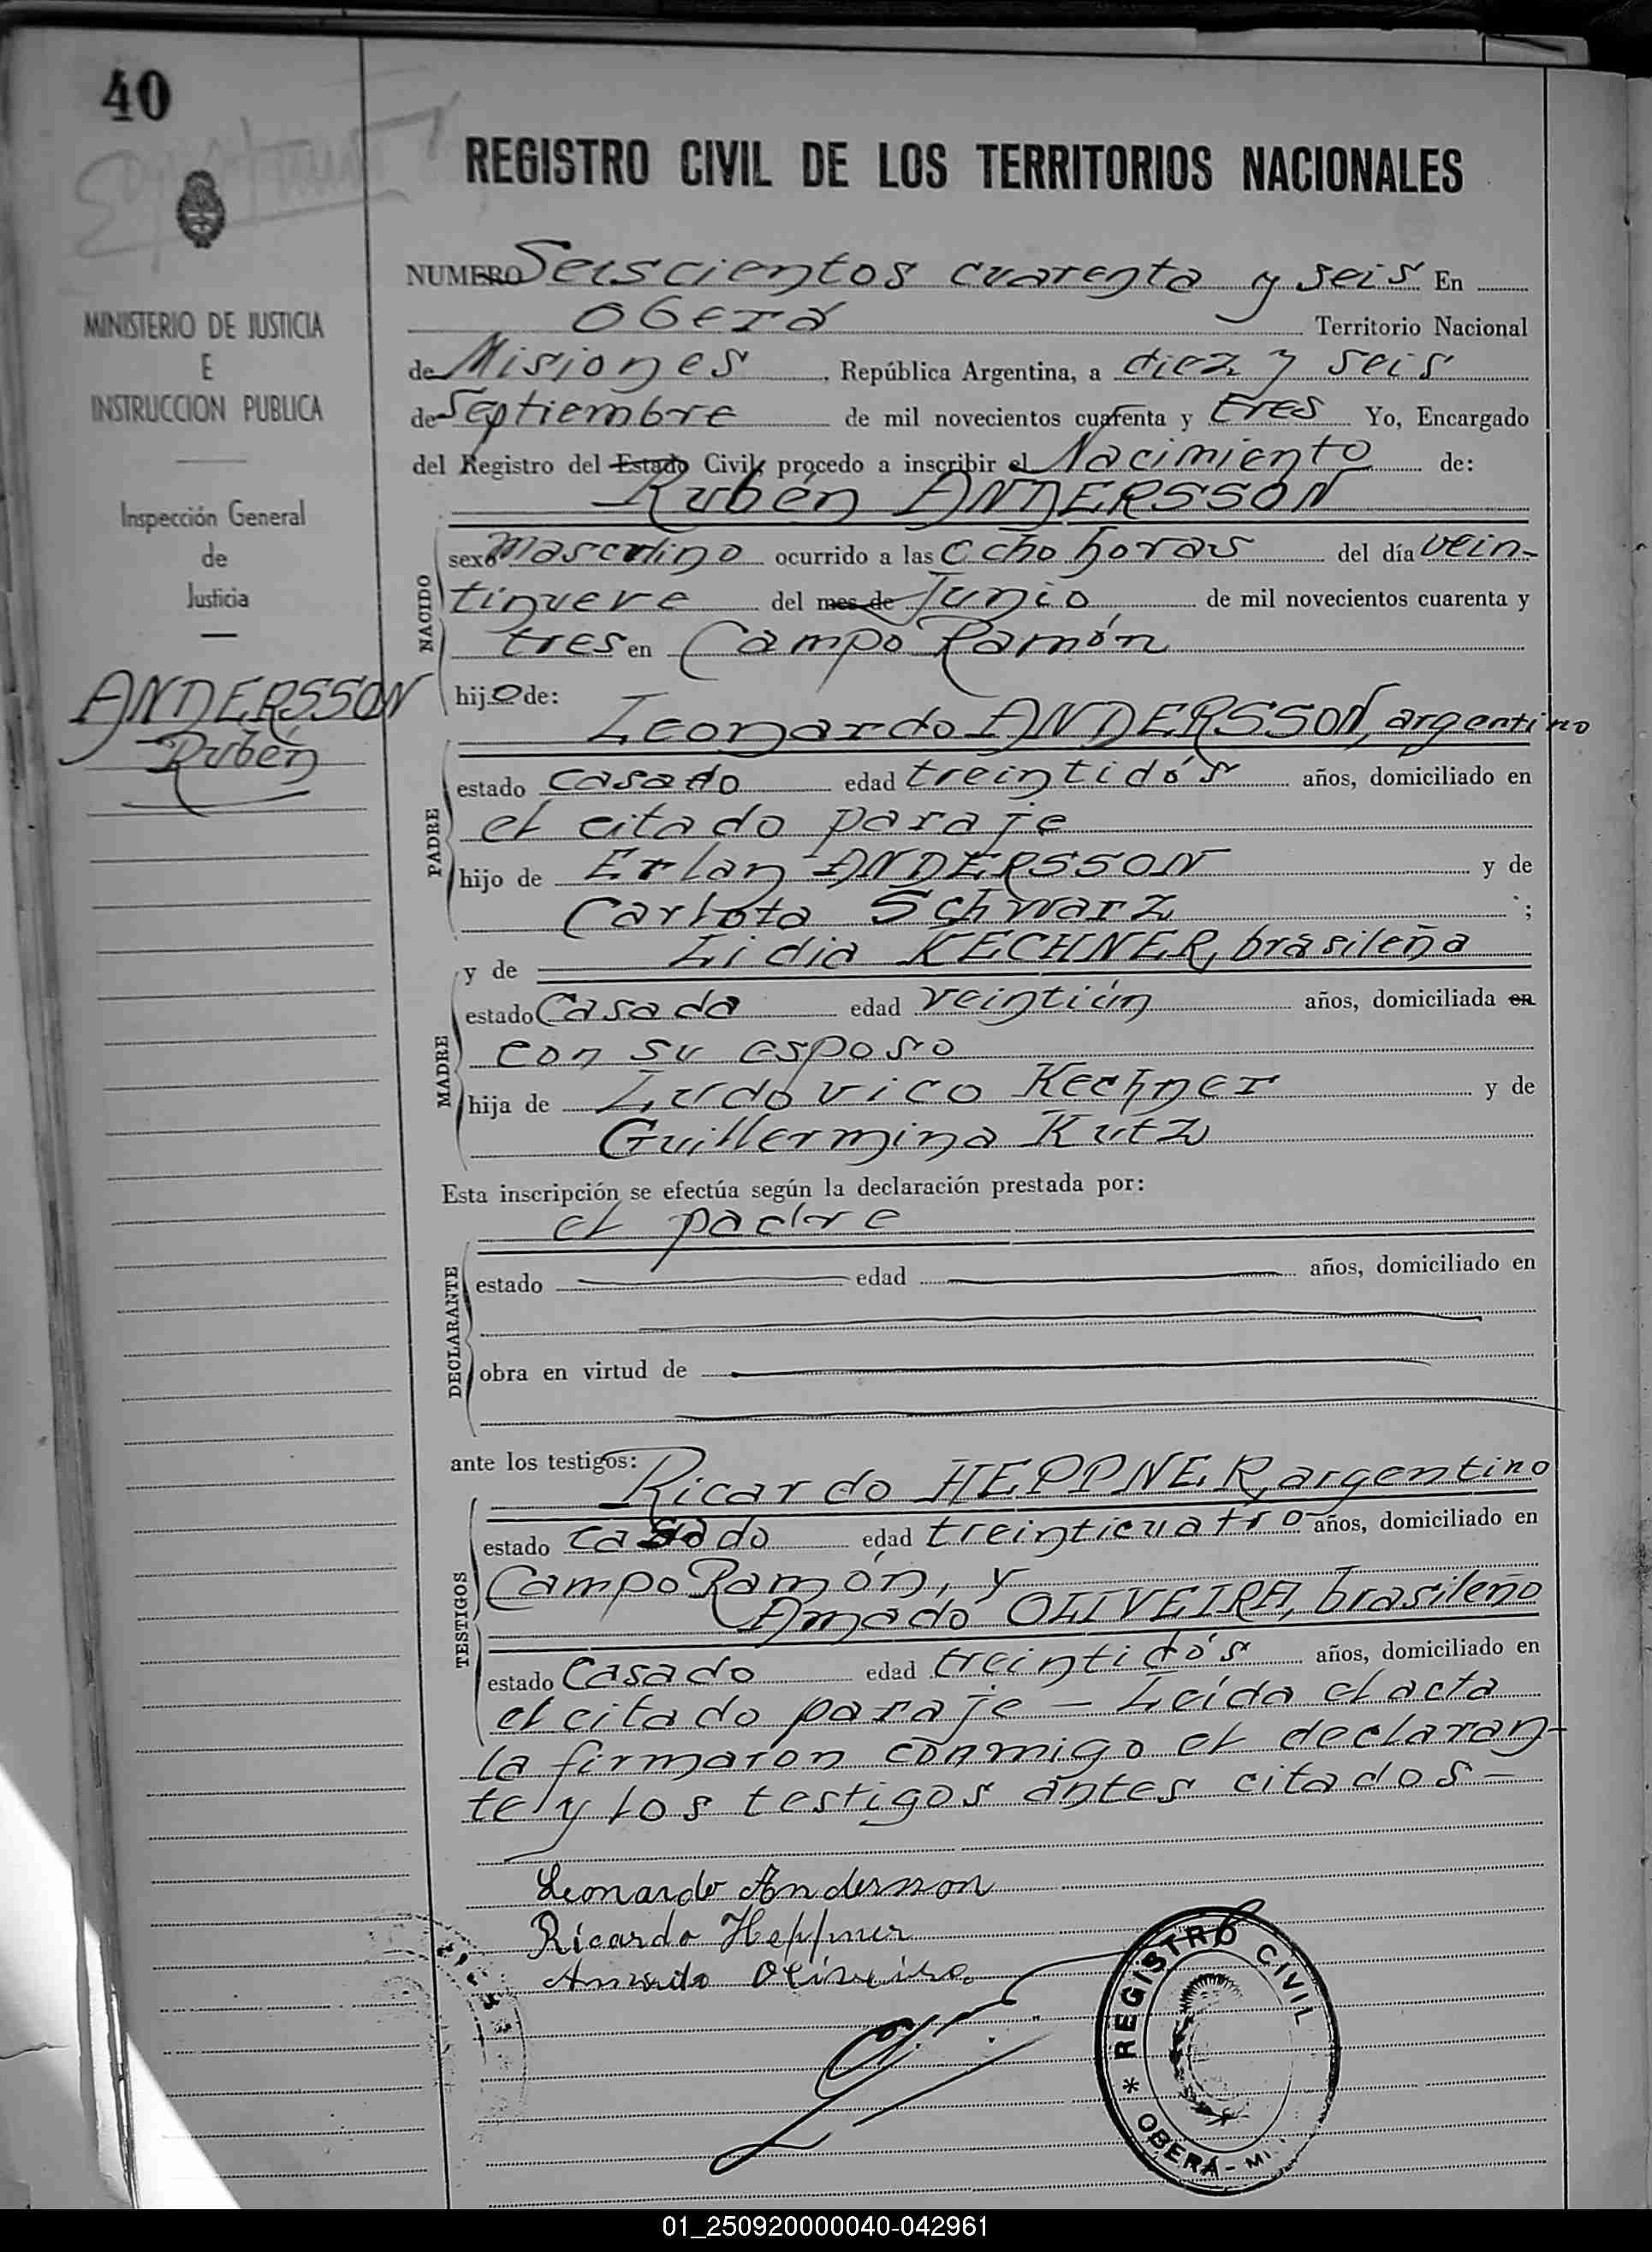 40
REGISTRO CIVIL DE LOS TERRITORIOS NACIONALES
MINISTERIO DE JUSTICIA
E
INSTRUCCION PUBLICA
Inspección General
de
Justicia
ANDERSSON
Rubén
NUMERO Seiscientos cuarenta y seis En
Oberá Territorio Nacional
de Misiones, República Argentina, a diez y seis
de Septiembre de mil novecientos cuarenta y tres Yo, Encargado
del Registro del Estado Civil, procedo a inscribir el Nacimiento de:
Rubén ANDERSSON
NACIDO
sexo masculino ocurrido a las ocho horas del día vein-
tinueve del mes de Junio de mil novecientos cuarenta y
tres en Campo Ramón
hijo de:
Leonardo ANDERSSON, argentino
PADRE
estado casado edad treintidós años, domiciliado en
el citado paraje
hijo de Erlan ANDERSSON y de
Carlota Schwarz;
y de Lidia KECHNER, brasileña
MADRE
estado Casada edad veintiún años, domiciliada en
con su esposo
hija de Ludovico Kechner y de
Guillermina Kutz
Esta inscripción se efectúa según la declaración prestada por:
el padre
DECLARANTE
estado edad años, domiciliado en
obra en virtud de
ante los testigos:
Ricardo HEPPNER, argentino
TESTIGOS
estado casado edad treinticuatro años, domiciliado en
Campo Ramón, y
Amado OLIVEIRA, brasileño
estado Casado edad treintidós años, domiciliado en
el citado paraje - Leída el acta
la firmaron conmigo el declaran-
te y los testigos antes citados -
Leonardo Andersson
Ricardo Heppner
Amado Oliveira
REGISTRO CIVIL
* OBERÁ - MI
01_250920000040-042961